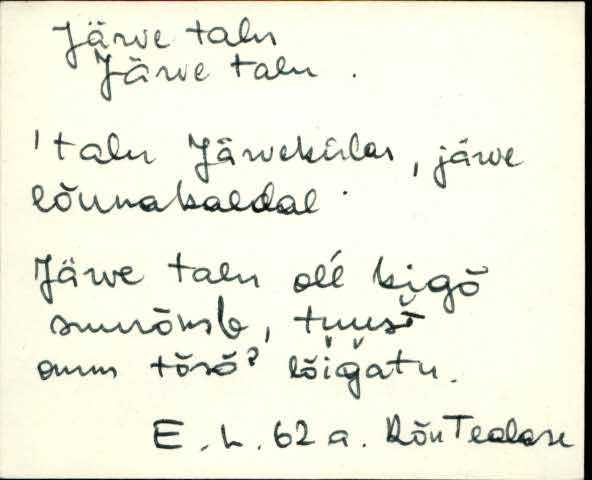 Järve talu
Järve talu .
'talu Järvekülas, järve
lõunakaldal .
Järve talu olĺ kigõ
suurõmb, tuust
omm tõsõʔ lõiǧatu.
E. L. 62 a. Rõn